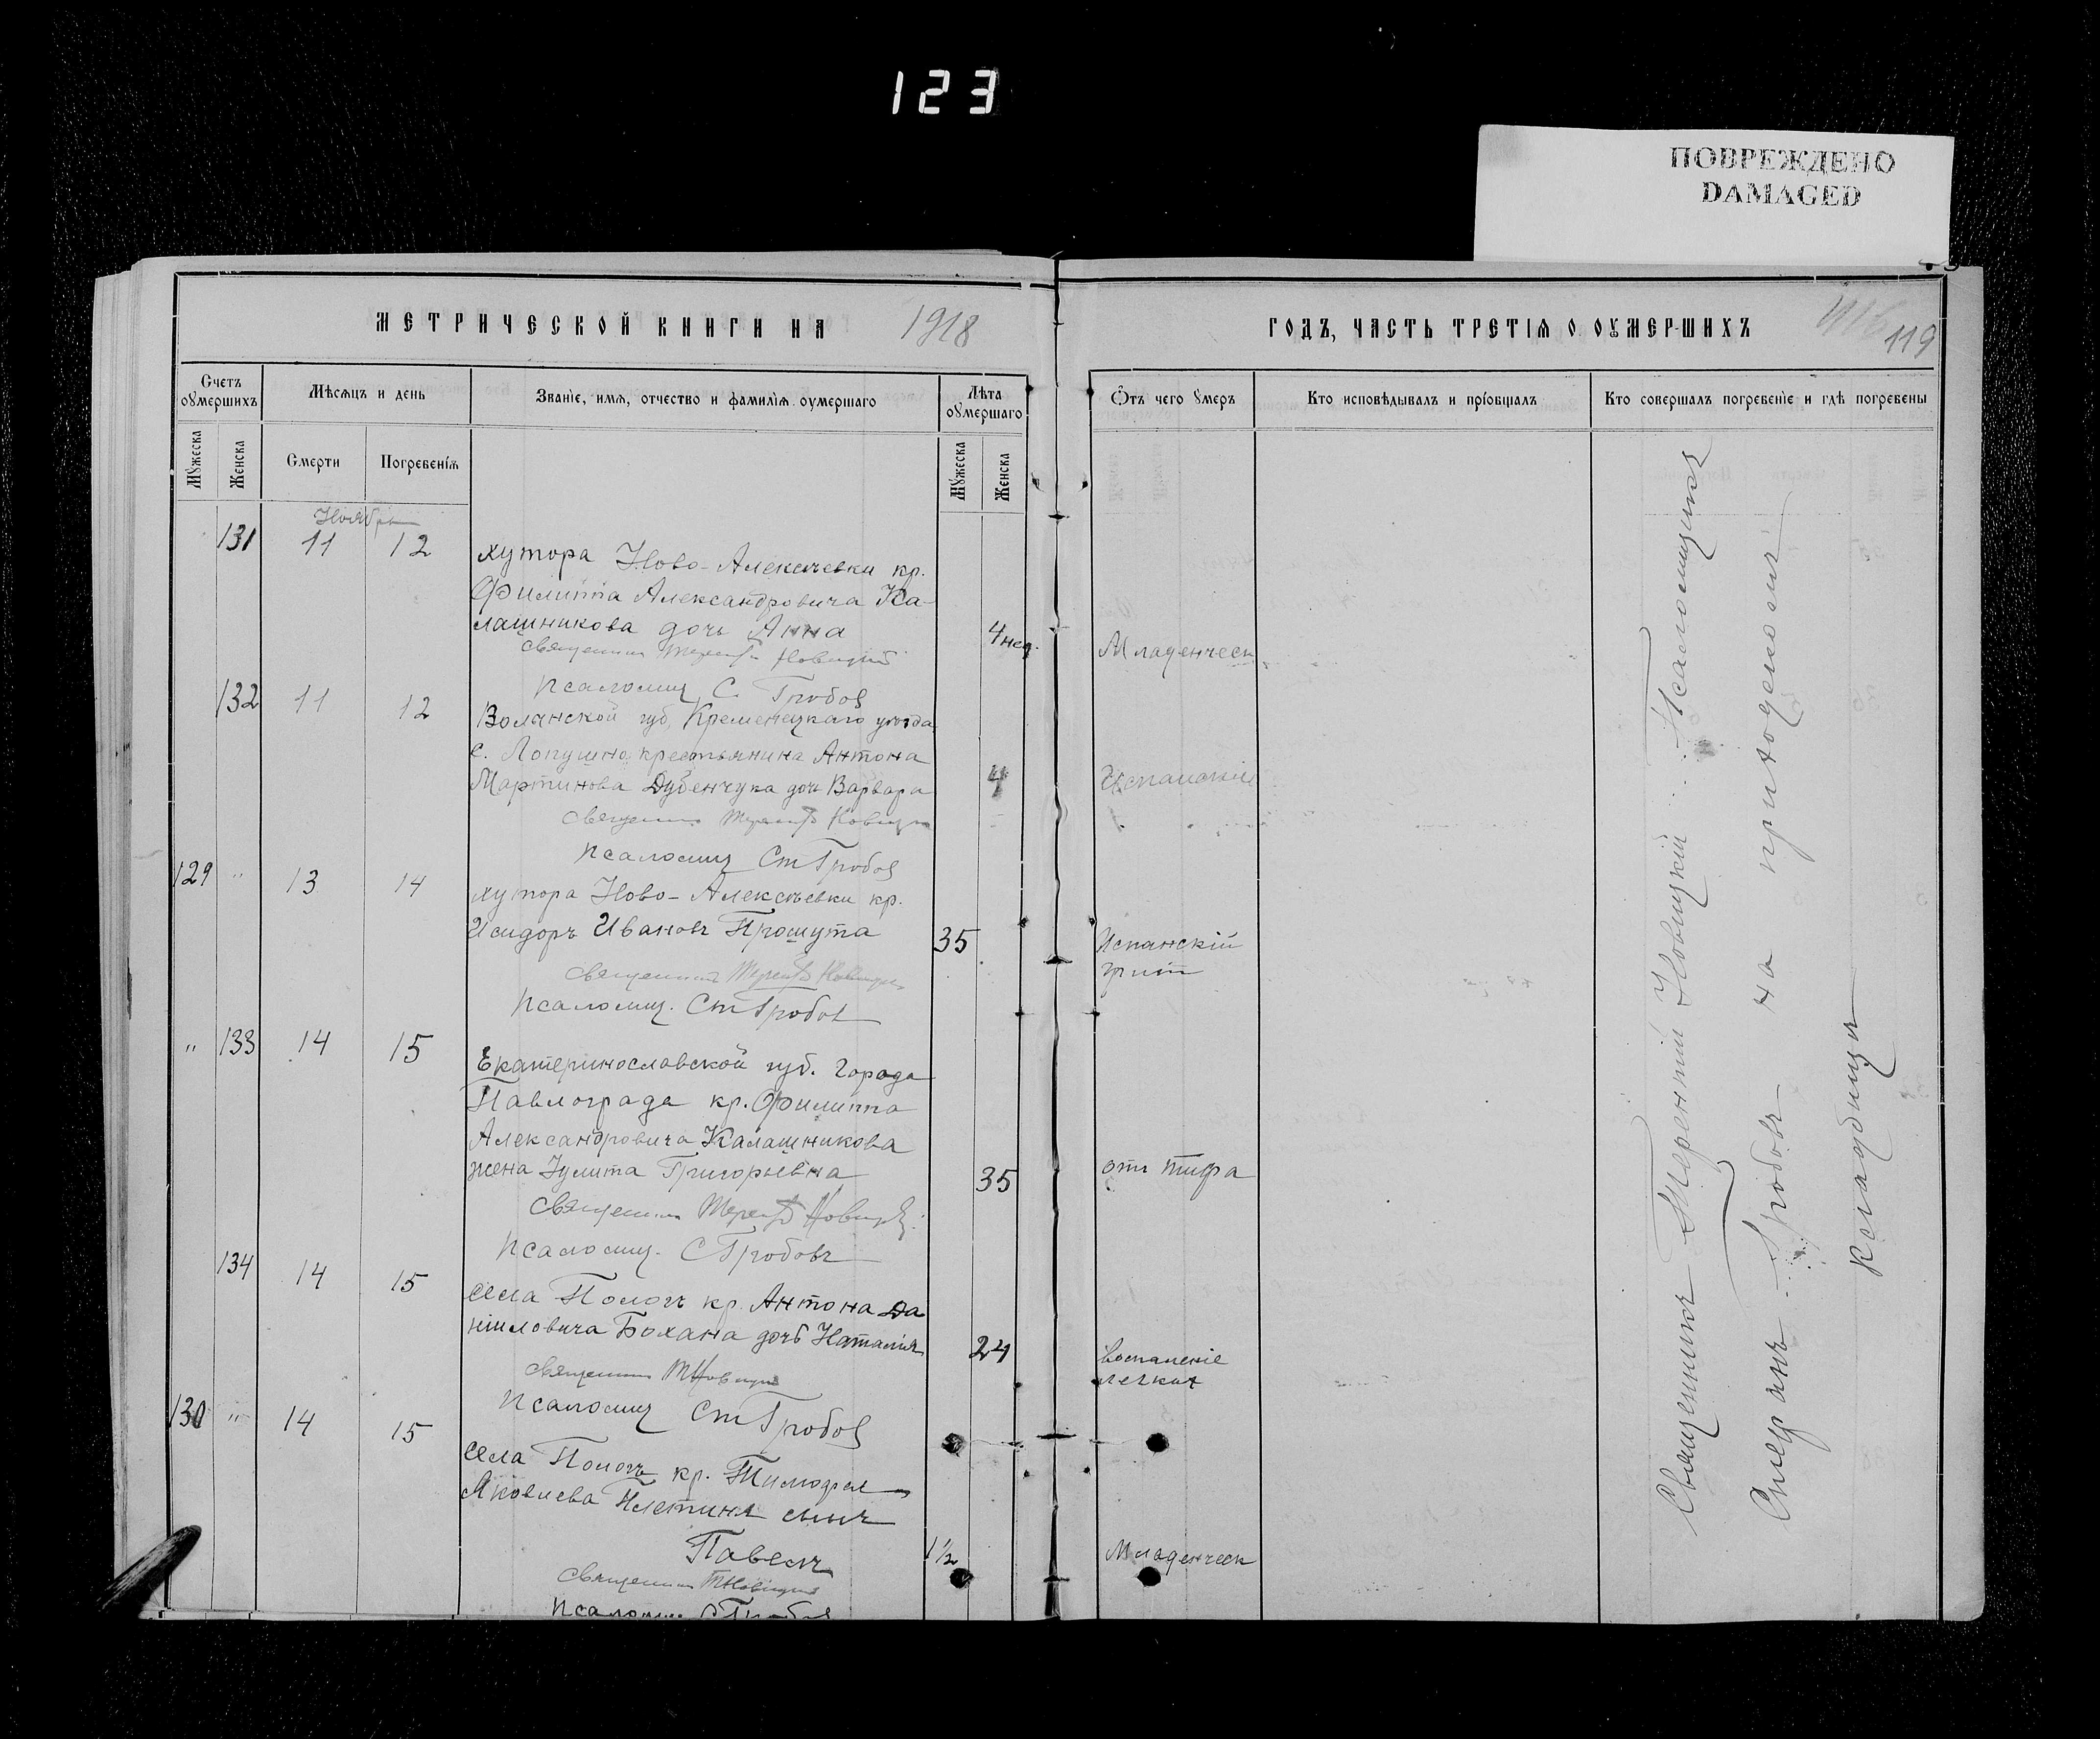 123
ПОВРЕЖДЕНО
DAMAGED
МЕТРИЧЕСКОЙ КНИГИ НА 1918
ГОДЪ, ЧАСТЬ ТРЕТІѦ О ОУМЕРШИХЪ
119
Счетъ оумершихъ
Мѣсѧцъ и день
Званіе, имѧ, отчество и фамиліѧ оумершаго
Лѣта оумершаго
Ѿтъ чего оумеръ
Кто исповѣдывалъ и пріобщалъ
Кто совершалъ погребеніе и гдѣ погребены
Мужеска
Женска
Смерти
Погребеніѧ
Мужеска
Женска
Ноябрь
131 11 12 хутора Ново-Алексѣевки кр.
Филиппа Александровича Ка-
лашникова дочь Анна 4 нед. Младенческ.
Священник Терентій Новицкій
Псаломщ С. Гробов
132 11 12 Волынской губ, Кременецкаго уѣзда
с. Лопушно крестьянина Антона
Мартинова Дубенчука дочь Варвара 4
Священник Терентій Новицкій
Псаломщ Ст Гробов
129 " 13 14 хутора Ново-Алексѣевки кр.
Исидоръ Ивановъ Прошута 35 Испанскій
грипп
Священник Терентій Новицкій
Псаломщ. Ст Гробов
" 133 14 15 Екатеринославской губ. города
Павлограда кр. Филиппа
Александровича Калашникова
жена Іулита Григорьевна 35 отъ тифа
Священник Терентій Новицкій
Псаломщ. С Гробовъ
134 14 15 села Пологъ кр. Антона Да
ніиловича Бохана дочь Наталія 24 воспаленіе
легких
Священник Т Новицкій
Псаломщ Ст Гробов
130 " 14 15 села Пологъ кр. Тимофея
Яковлева Плетиня сынъ
Павелъ 1½ Младенческ
Священник Т Новицкій
Псаломщ С Гробов
Священникъ Терентій Новицкій Псаломщикъ
Стефанъ Гробовъ на приходскомъ
кладбищѣ